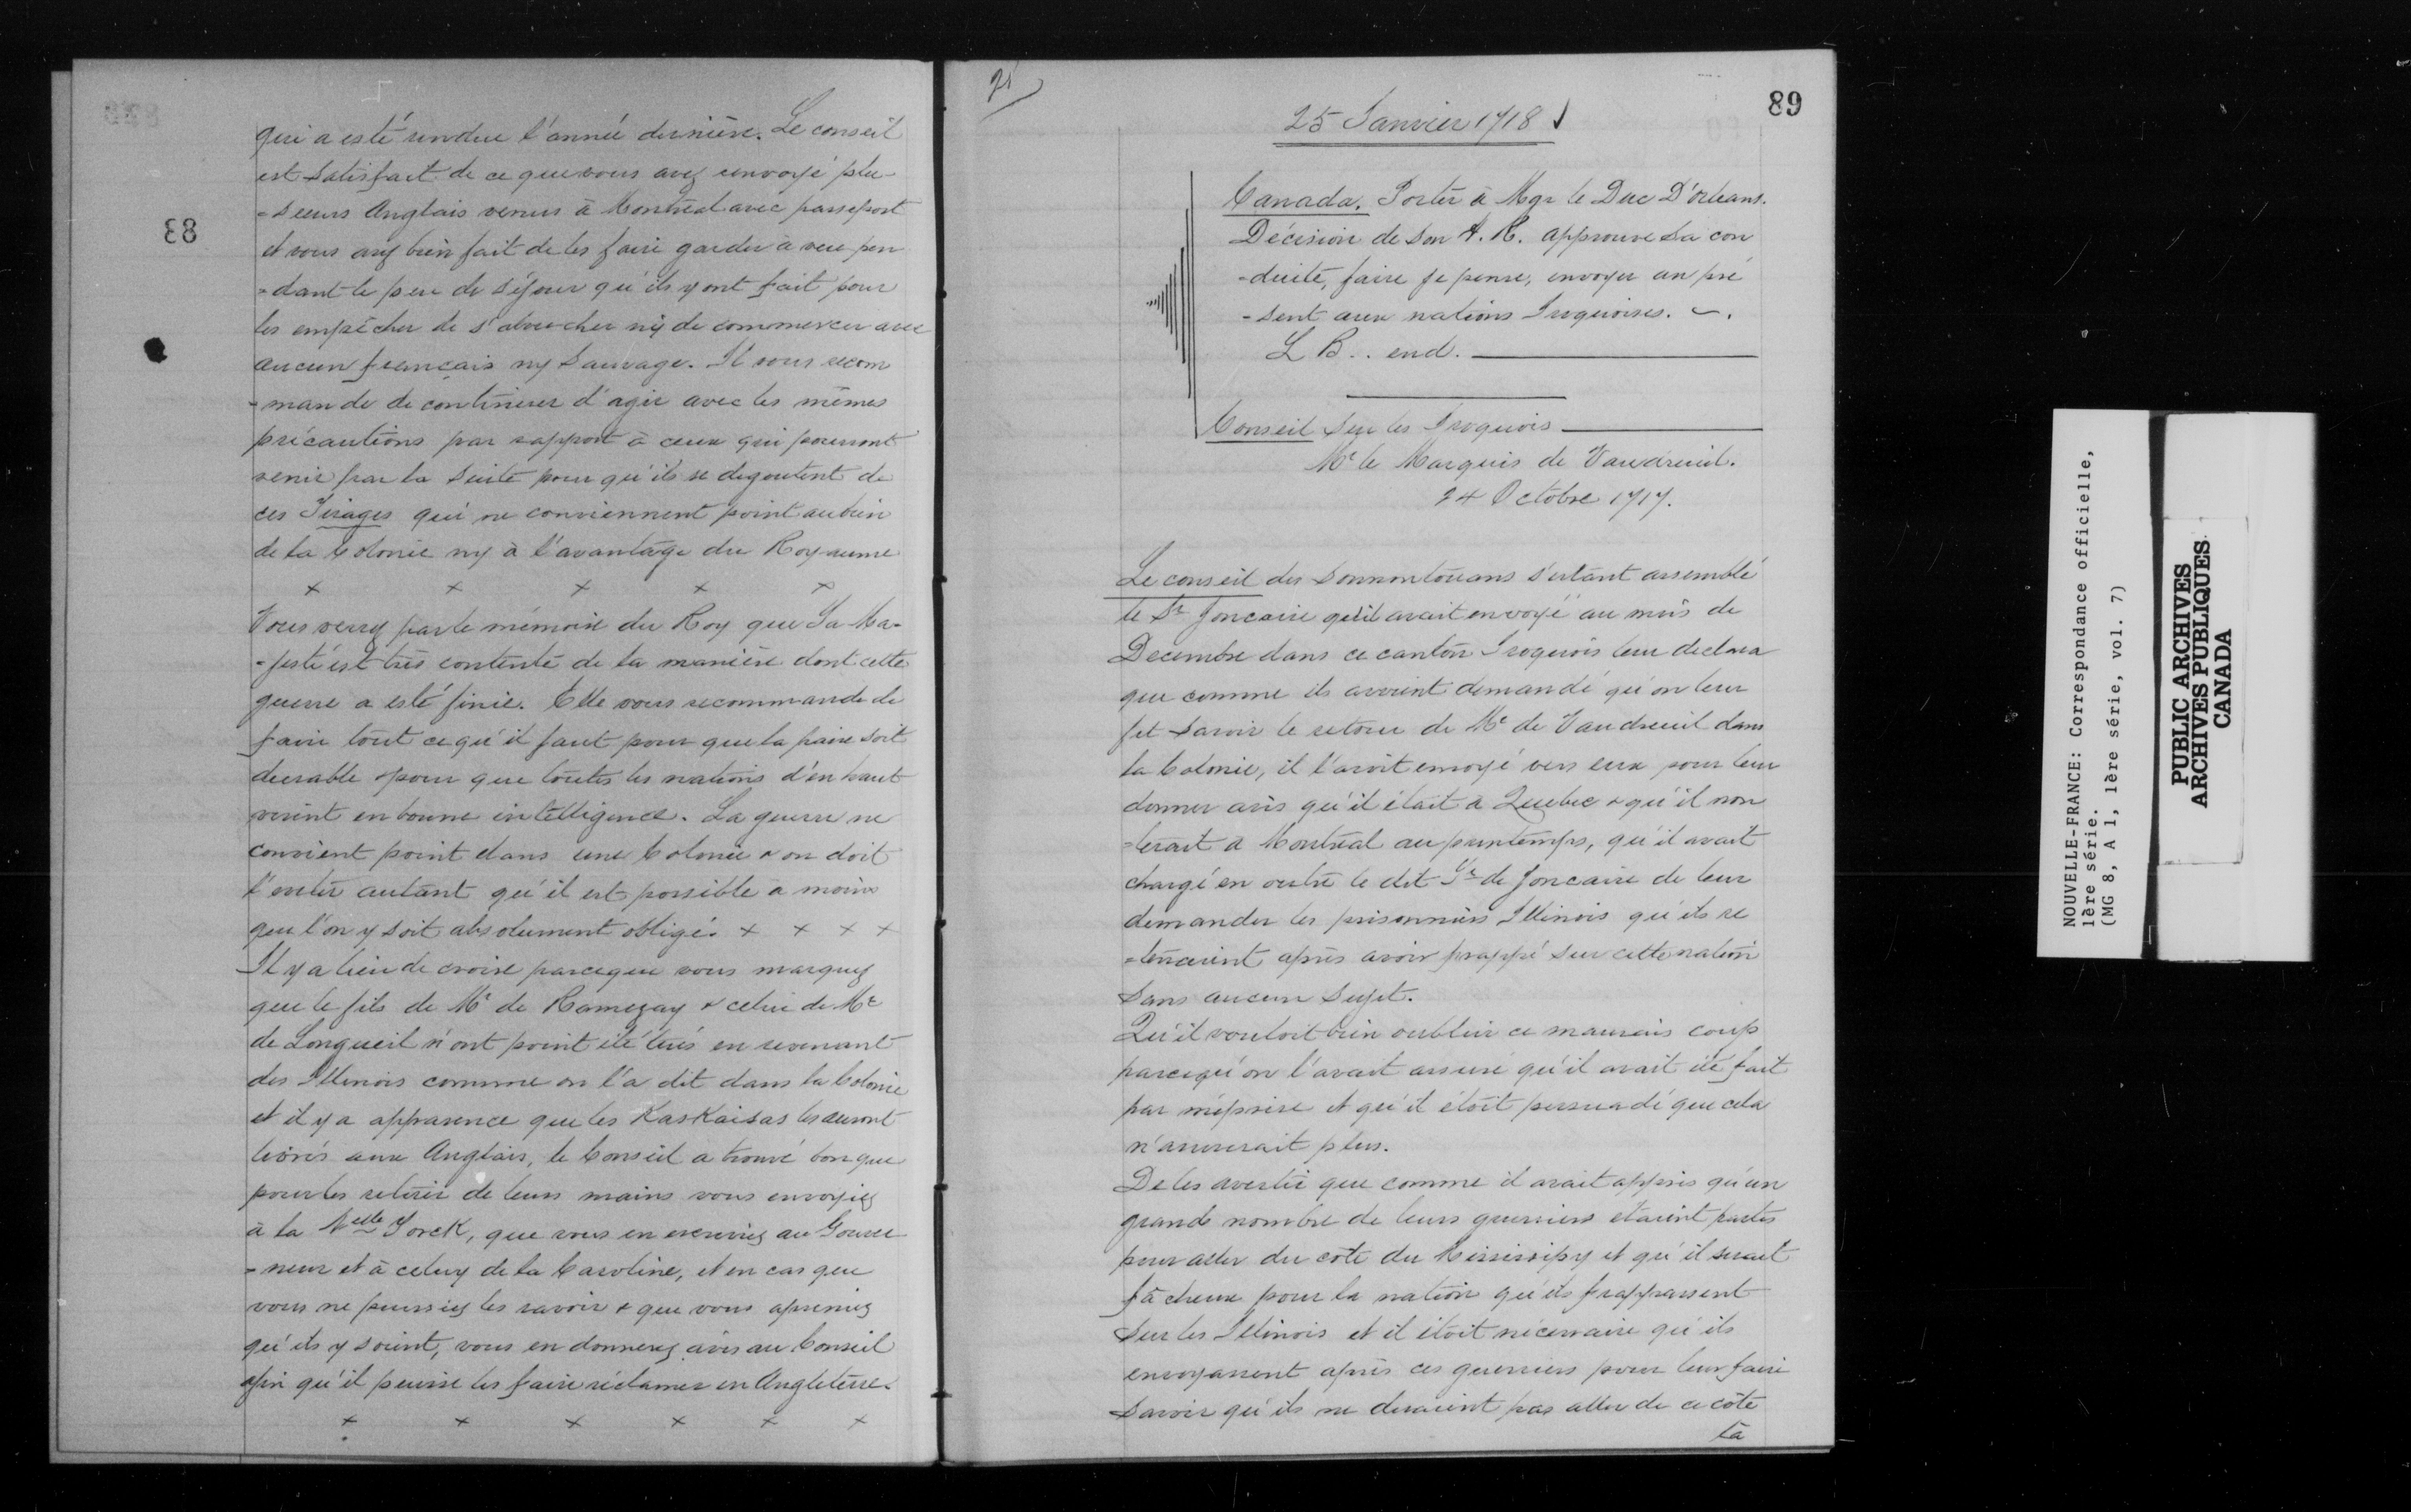 qui a esté rendue l'année dernière. Le conseil
est satisfait de ce que vous avez renvoyé plu-
=sieurs Anglais venus à Montréal avec passeport
et vous avez bien fait de les faire garder à vue pen
=dant le peu de séjour qu'ils y ont fait pour
les empêcher de s'aboucher ny de commercer avec
aucun français ny Sauvage. Il vous recom
-mande de continuer d'agir avec les mêmes
précautions par rapport à ceux qui pourront
venir par la suite pour qu'ils se degoutent de
ces Virages qui ne conviennent point au bien
de la Colonie ny à l'avantage du Royaume
x x x x x
Vous verrez par le mémoire du Roy que Sa Ma-
=jesté est très contente de la manière dont cette
guerre a esté finie. Elle vous recommande de
faire tout ce qu'il faut pour que la paix soit
durable & pour que toutes les nations d'en haut
vivent en bonne intelligence. La guerre ne
convient point dans une Colonie & on doit
l'eviter autant qu'il est possible à moins
que l'on y soit absolument obligé. x x x x
Il y a lieu de croire parceque vous marquez
que le fils de Mr de Ramezay & celui de Mr
de Longueil n'ont point été tués en revenant
des Illinois comme on l'a dit dans la Colonie
et il y a apparence que les Kaskaisas les auront
livrés aux Anglais, le Conseil a trouvé bon que
pour les retirer de leurs mains vous envoyiez
à la Nelle Yorck, que vous en ecriviez au Gouver
=neur et à celuy de la Caroline, et en cas que
vous ne puissiez les ravoir & que vous apreniez
qu'ils y soient, vous en donnerez avis au Conseil
afin qu'il puisse les faire réclamer en Angleterre.
x x x x x x
83
89
25 Janvier 1718
Canada. Porter à Mgr le Duc D'orleans.
Décision de Son A. R. approuve sa con
-duite, faire je pense, envoyer un pré
-sent aux nations Iroquoises.
L B.. end.
Conseil Sur les Iroquois
Mr le Marquis de Vaudreuil.
24 Octobre 1717.
Le conseil des Sonnontouans s'estant assemblé
le Sr Joncaire qu'il avait envoyé au mois de
Decembre dans ce canton Iroquois leur declara
que comme ils avoient demandé qu'on leur
fit savoir le retour de Mr de Vaudreuil dans
la Colonie, il l'avoit envoyé vers eux pour leur
donner avis qu'il était à Quebec & qu'il mon
=terait à Montréal au printemps, qu'il avait
chargé en outre le dit Sr de Joncaire de leur
demander les prisonniers Illinois qu'ils re
=tenaient après avoir frappé sur cette nation
sans aucun sujet.
Qu'il vouloit bien oublier ce mauvais coup
parcequ'on l'avait assuré qu'il avait été fait
par méprise et qu'il étoit persuadé que cela
n'arriverait plus.
De les avertir que comme il avait appris qu'un
grand nombre de leurs guerriers etaient partis
pour aller du côté du Mississipy et qu'il serait
fâcheux pour la nation qu'ils frappassent
sur les Illinois et il étoit nécessaire qu'ils
envoyassent après ces guerriers pour leur faire
savoir qu'ils ne devaient pas aller de ce côté
là
NOUVELLE-FRANCE: Correspondance officielle,
1ère série.
(MG 8, A 1, 1ère série, vol. 7)
PUBLIC ARCHIVES
ARCHIVES PUBLIQUES
CANADA